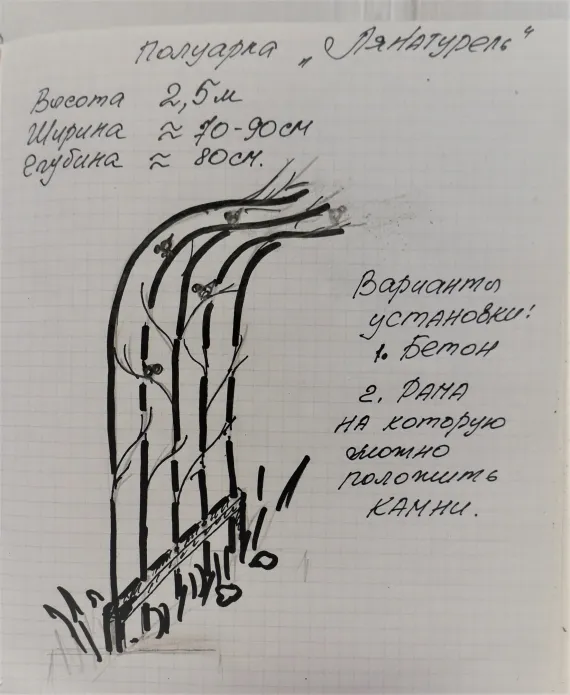 Полуарка „Лянатурель“
Высота 2,5м
Ширина ≈ 70-90см
Глубина ≈ 80см.
Варианты
установки:
1. Бетон
2. РАМА
НА которую
можно
положить
КАМНИ.